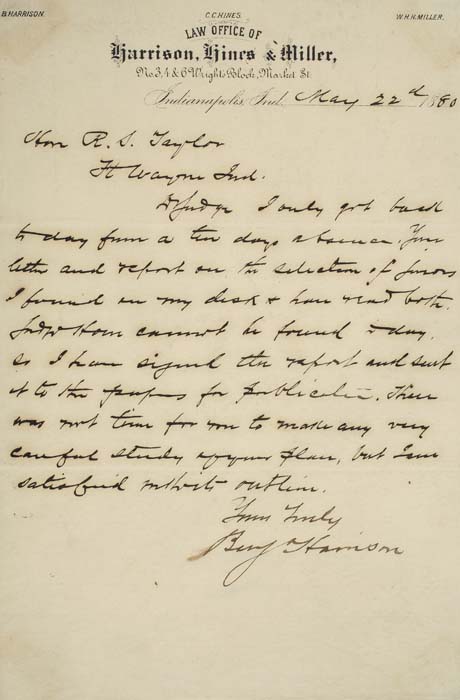 B. HARRISON. C.C. HINES. W.H.H. MILLER.
LAW OFFICE OF
Harrison, Hines & Miller,
No. 3, 4 & 6 Wright's Block, Market St.
Indianapolis, Ind. May 22d 1880
Hon R. S. Taylor
Ft Wayne Ind.
D Judge I only got back
to day from a ten days absence. Your
letter and report on the selection of jurors
I found on my desk & have read both.
Judge Horn cannot be found today.
so I have signed the report and sent
it to the papers for publication. There
was not time for me to make any very
careful study of your plan, but I am
satisfied with its outline.
Yours Truly
Benj Harrison